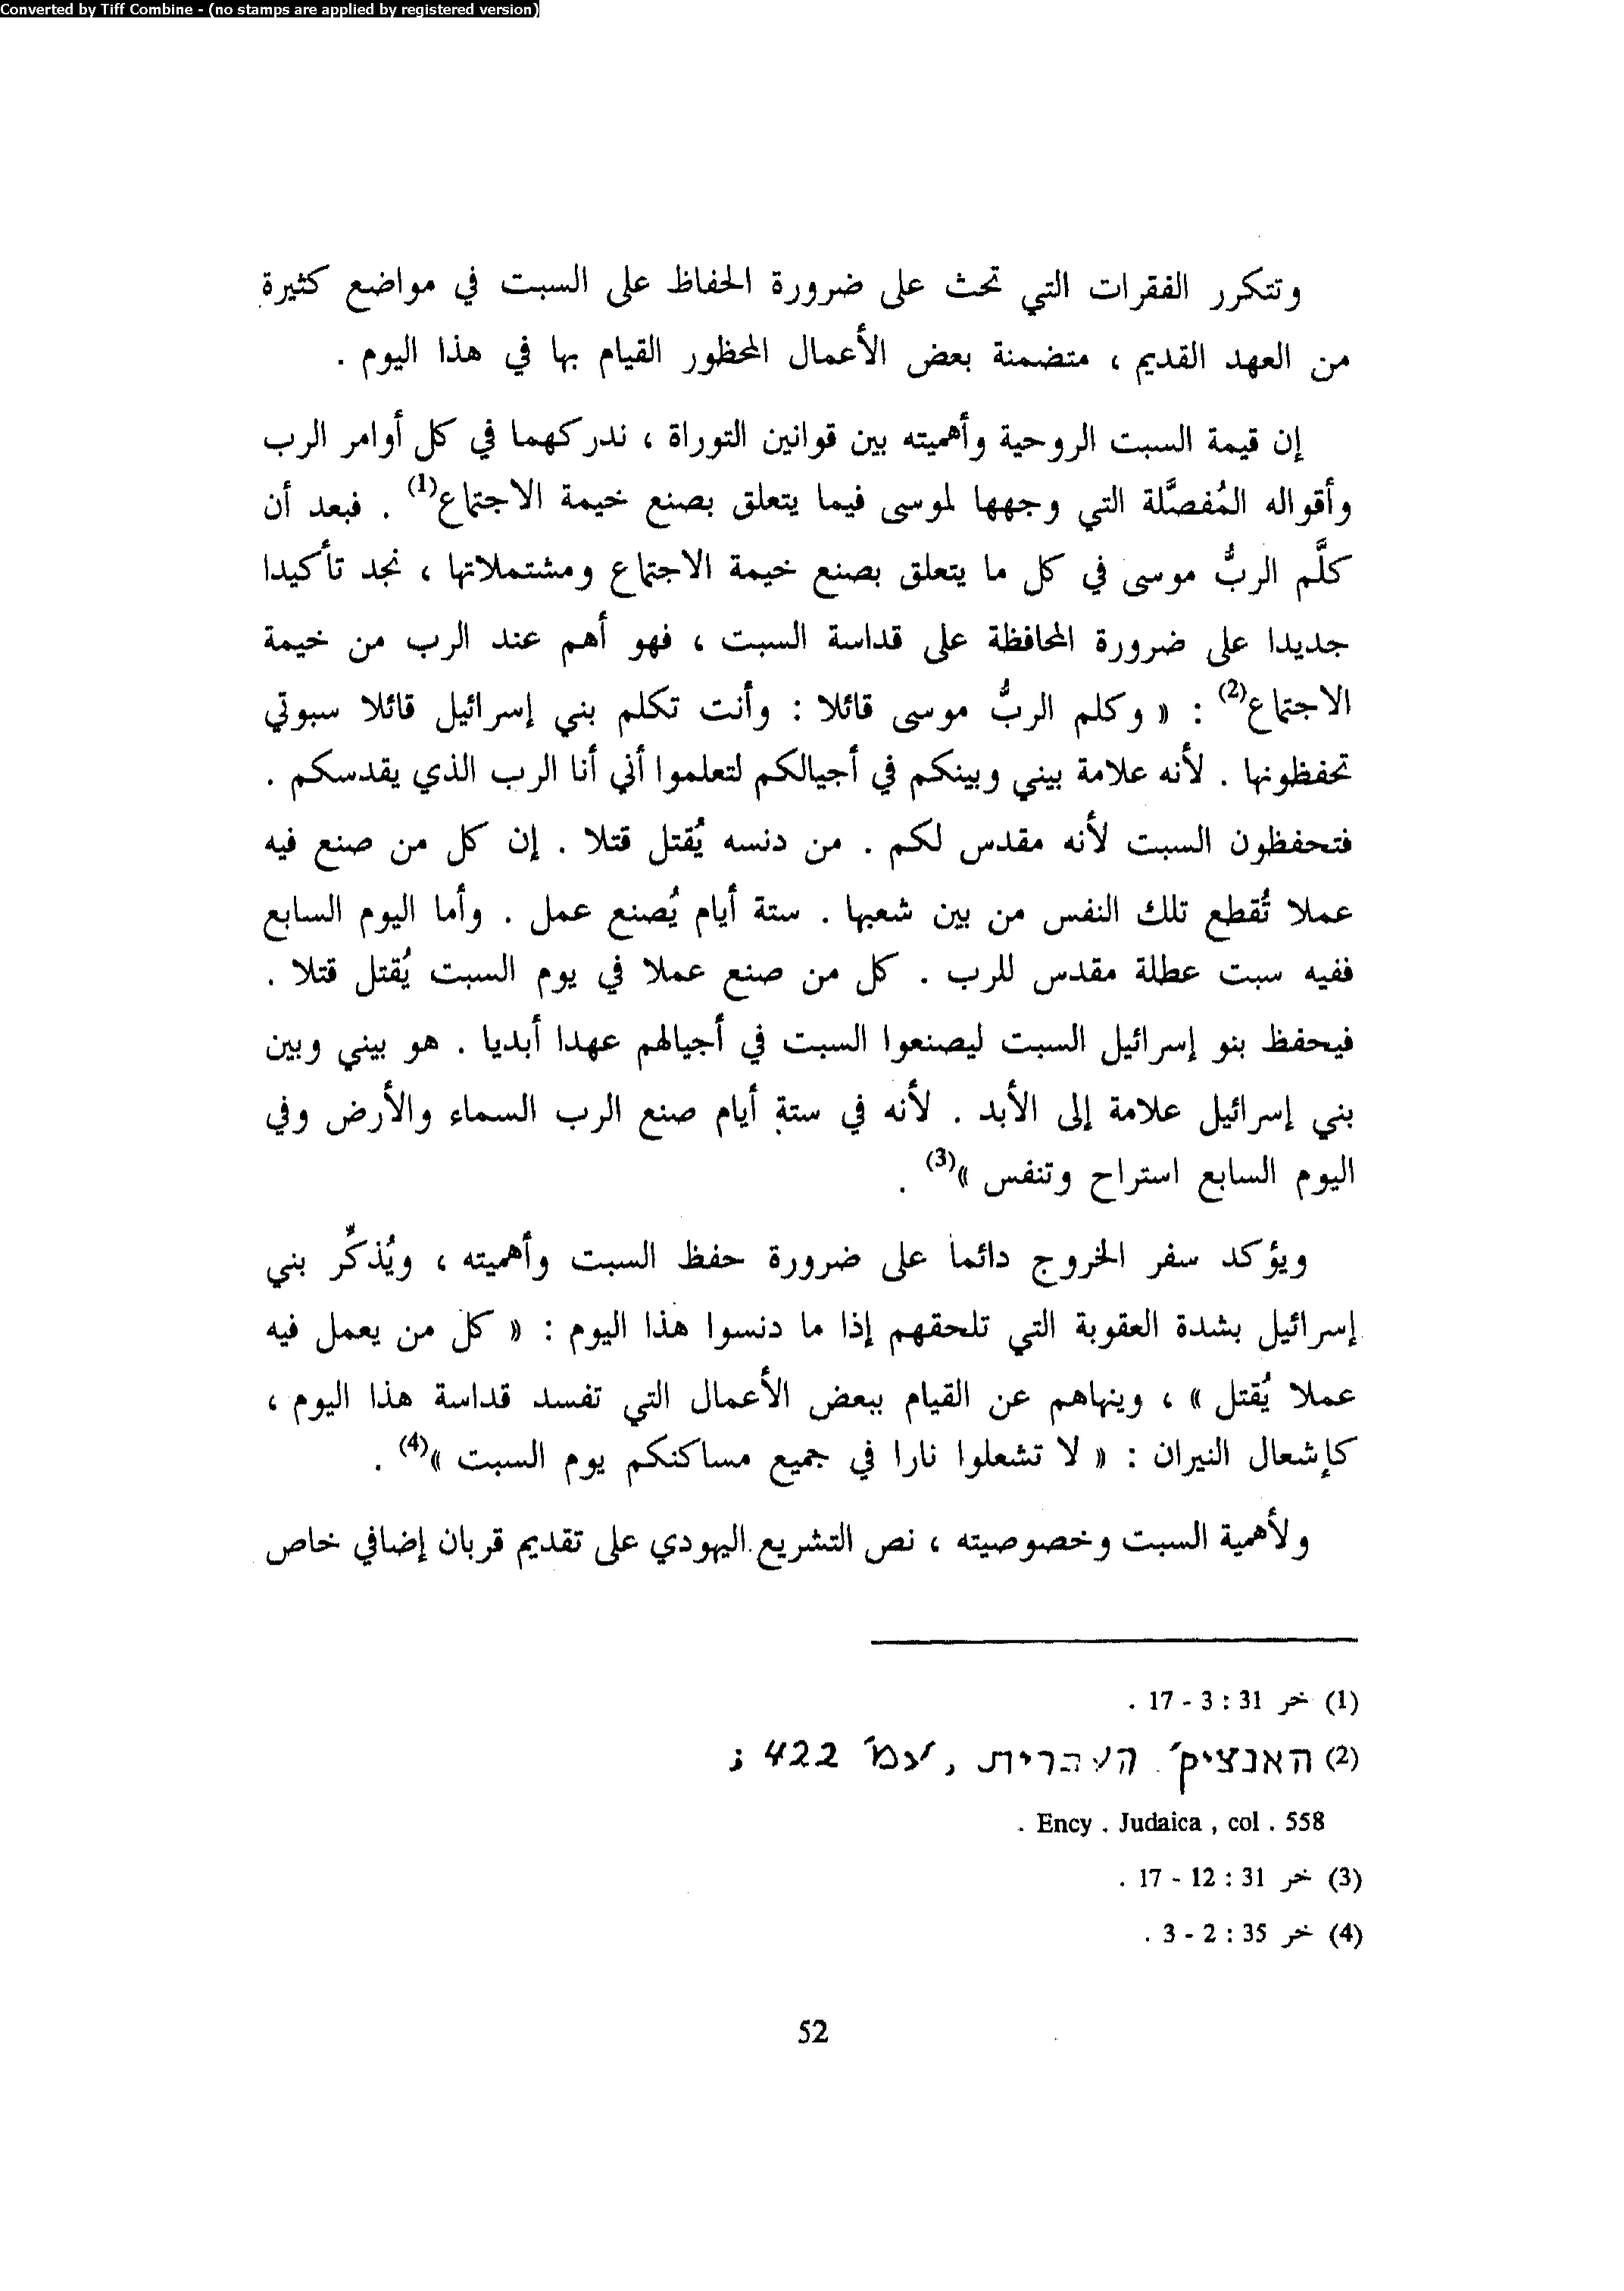 Converted by Tiff Combine - (no stamps are applied by registered version)
وتتكرر الفقرات التي تحث على ضرورة الحفاظ على السبت في مواضع كثيرة
من العهد القديم ، متضمنة بعض الأعمال المحظور القيام بها في هذا اليوم .
إن قيمة السبت الروحية وأهميته بين قوانين التوراة ، ندركهما في كل أوامر الرب
وأقواله المُفصَّلة التي وجهها لموسى فيما يتعلق بصنع خيمة الاجتماع(1) . فبعد أن
كلَّم الربُّ موسى في كل ما يتعلق بصنع خيمة الاجتماع ومشتملاتها ، نجد تأكيدا
جديدا على ضرورة المحافظة على قداسة السبت ، فهو أهم عند الرب من خيمة
الاجتماع(2) : « وكلم الربُّ موسى قائلا : وأنت تكلم بني إسرائيل قائلا سبوتي
تحفظونها . لأنه علامة بيني وبينكم في أجيالكم لتعلموا أني أنا الرب الذي يقدسكم .
فتحفظون السبت لأنه مقدس لكم . من دنسه يُقتل قتلا . إن كل من صنع فيه
عملا تُقطع تلك النفس من بين شعبها . ستة أيام يُصنع عمل . وأما اليوم السابع
ففيه سبت عطلة مقدس للرب . كل من صنع عملا في يوم السبت يُقتل قتلا .
فيحفظ بنو إسرائيل السبت ليصنعوا السبت في أجيالهم عهدا أبديا . هو بيني وبين
بني إسرائيل علامة إلى الأبد . لأنه في ستة أيام صنع الرب السماء والأرض وفي
اليوم السابع استراح وتنفس »(3) .
ويؤكد سفر الخروج دائما على ضرورة حفظ السبت وأهميته ، ويُذكِّر بني
إسرائيل بشدة العقوبة التي تلحقهم إذا ما دنسوا هذا اليوم : « كل من يعمل فيه
عملا يُقتل » ، وينهاهم عن القيام ببعض الأعمال التي تفسد قداسة هذا اليوم ،
كإشعال النيران : « لا تشعلوا نارا في جميع مساكنكم يوم السبت »(4) .
ولأهمية السبت وخصوصيته ، نص التشريع اليهودي على تقديم قربان إضافي خاص
(1) خر 31 : 3 - 17 .
(2) האנציק׳ העברית , עמ׳ 422 ;
Ency . Judaica , col . 558 .
(3) خر 31 : 12 - 17 .
(4) خر 35 : 2 - 3 .
52